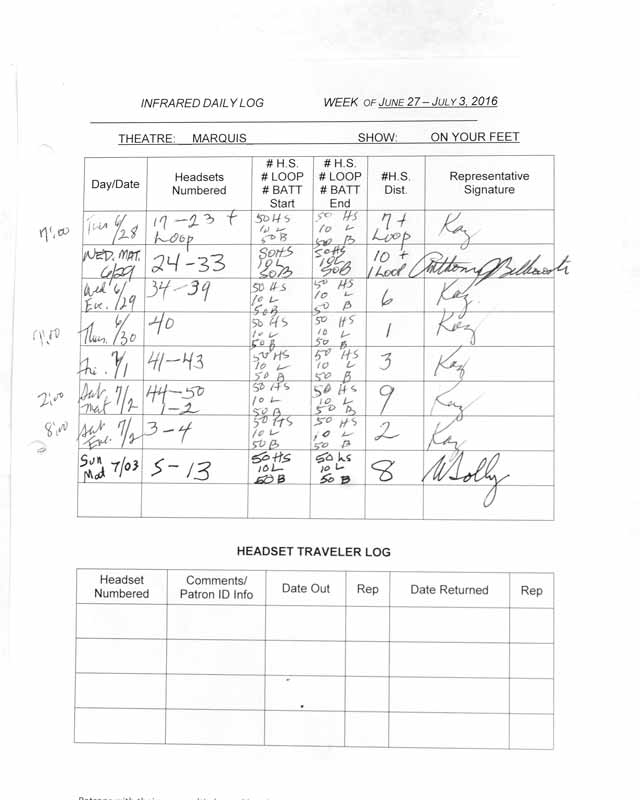 INFRARED DAILY LOG WEEK OF JUNE 27 – JULY 3, 2016
THEATRE: MARQUIS SHOW: ON YOUR FEET
Day/Date Headsets Numbered # H.S. # LOOP # BATT Start # H.S. # LOOP # BATT End #H.S. Dist. Representative Signature
7:00 Tues 6/28 17-23 + Loop 50 HS 10 L 50 B 50 HS 10 L 50 B 7 + Loop Kaz
WED. MAT. 6/29 24-33 50HS 10L 50B 50HS 10L 50B 10 + 1 Loop Anthony
Wed 6/29 Eve. 34-39 50 HS 10 L 50 B 50 HS 10 L 50 B 6 Kaz
7:00 Thurs. 6/30 40 50 HS 10 L 50 B 50 HS 10 L 50 B 1 Kaz
Fri. 7/1 41-43 50 HS 10 L 50 B 50 HS 10 L 50 B 3 Kaz
2:00 Sat Mat 7/2 44-50 1-2 50 HS 10 L 50 B 50 HS 10 L 50 B 9 Kaz
8:00 Sat Eve. 7/2 3-4 50 HS 10 L 50 B 50 HS 10 L 50 B 2 Kaz
Sun Mat 7/03 5-13 50HS 10L 50B 50 hs 10 L 50 B 8
HEADSET TRAVELER LOG
Headset Numbered Comments/ Patron ID Info Date Out Rep Date Returned Rep